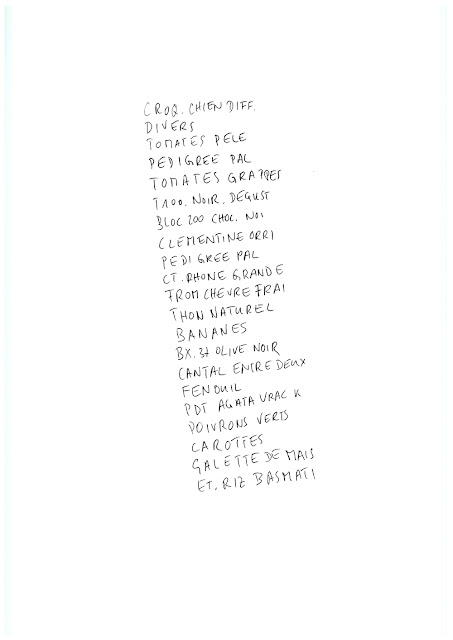 CROQ. CHIEN DIFF.
DIVERS
TOMATES PELE
PEDIGREE PAL
TOMATES GRAPPES
T100. NOIR. DEGUST
BLOC 200 CHOC. NOI
CLEMENTINE ORRI
PEDIGREE PAL
CT. RHONE GRANDE
FROM CHEVRE FRAI
THON NATUREL
BANANES
BX. 37 OLIVE NOIR
CANTAL ENTRE DEUX
FENOUIL
PDT AGATA VRAC K
POIVRONS VERTS
CAROTTES
GALETTE DE MAIS
ET. RIZ BASMATI